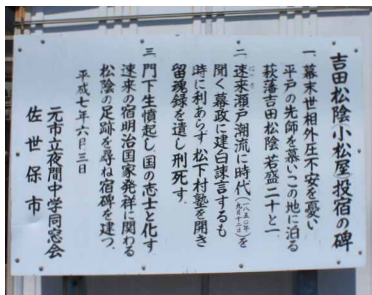 吉田松陰(小松屋)投宿の碑
一、幕末世相外圧不安を憂い
平戸の先師を慕いこの地に泊る
萩藩吉田松陰 若盛二十と一
二、速来瀬戸潮流に時代(一八五〇年九月十二日)を
聞く幕政に建白諫言するも
時に利あらず 松下村塾を開き
留魂録を遺し刑死す。
三、門下生憤起し国の志士と化す
速来の宿明治国家発祥に関わる
松陰の足跡を尋ね宿碑を建つ。
平成七年六月三日
元市立夜間中学同窓会
佐世保市